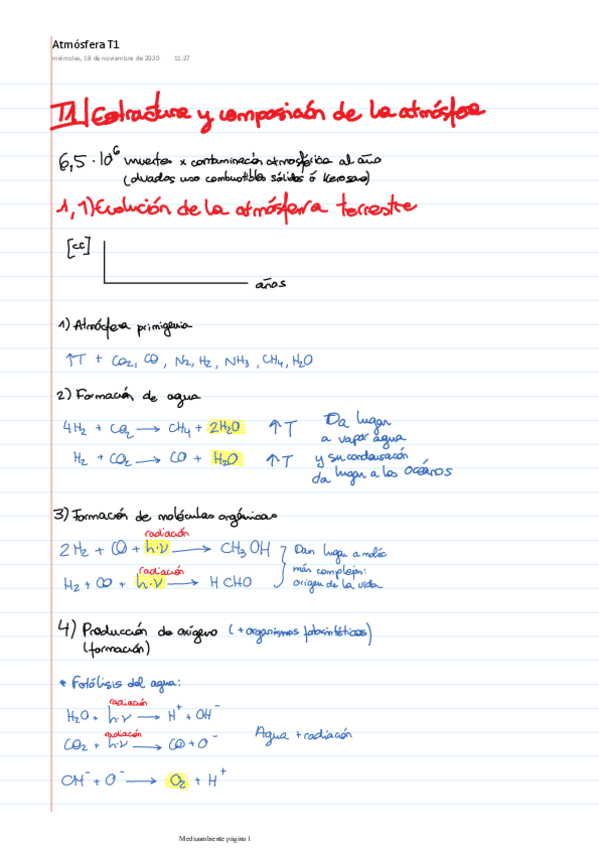 Atmósfera T1
miércoles, 18 de noviembre de 2020 11:27
T1/Estructura y composición de la atmósfera
6,5 · 10⁶ muertes x contaminación atmosférica al año
(olvadas uso combustibles sólidos ó Keroseno)
1,1) Evolución de la atmósferra terrestre
[cc]
años
1) Atmósfera primigenia
↑T + CO₂, CO, N₂, H₂, NH₃, CH₄, H₂O
2) Formación de agua
4H₂ + CO₂ → CH₄ + 2H₂O ↑T
H₂ + CO₂ → CO + H₂O ↑T
Da lugar
a vapor agua
y su condensación
da lugar a los OCÉANOS
3) Formación de moléculas orgánicas
radiación
2H₂ + CO + h·ν → CH₃OH
radiación
H₂ + CO + h·ν → HCHO
Dan lugar a moléc
más complejas:
origen de la vida
4) Producción de oxígeno (+organismos fotosintéticos)
(formación)
* Fotólisis del agua:
radiación
H₂O + h·ν → H⁺ + OH⁻
radiación
CO₂ + h·ν → CO + O⁻
Agua + radiación
OH⁻ + O⁻ → O₂ + H⁺
Medioambiente página 1